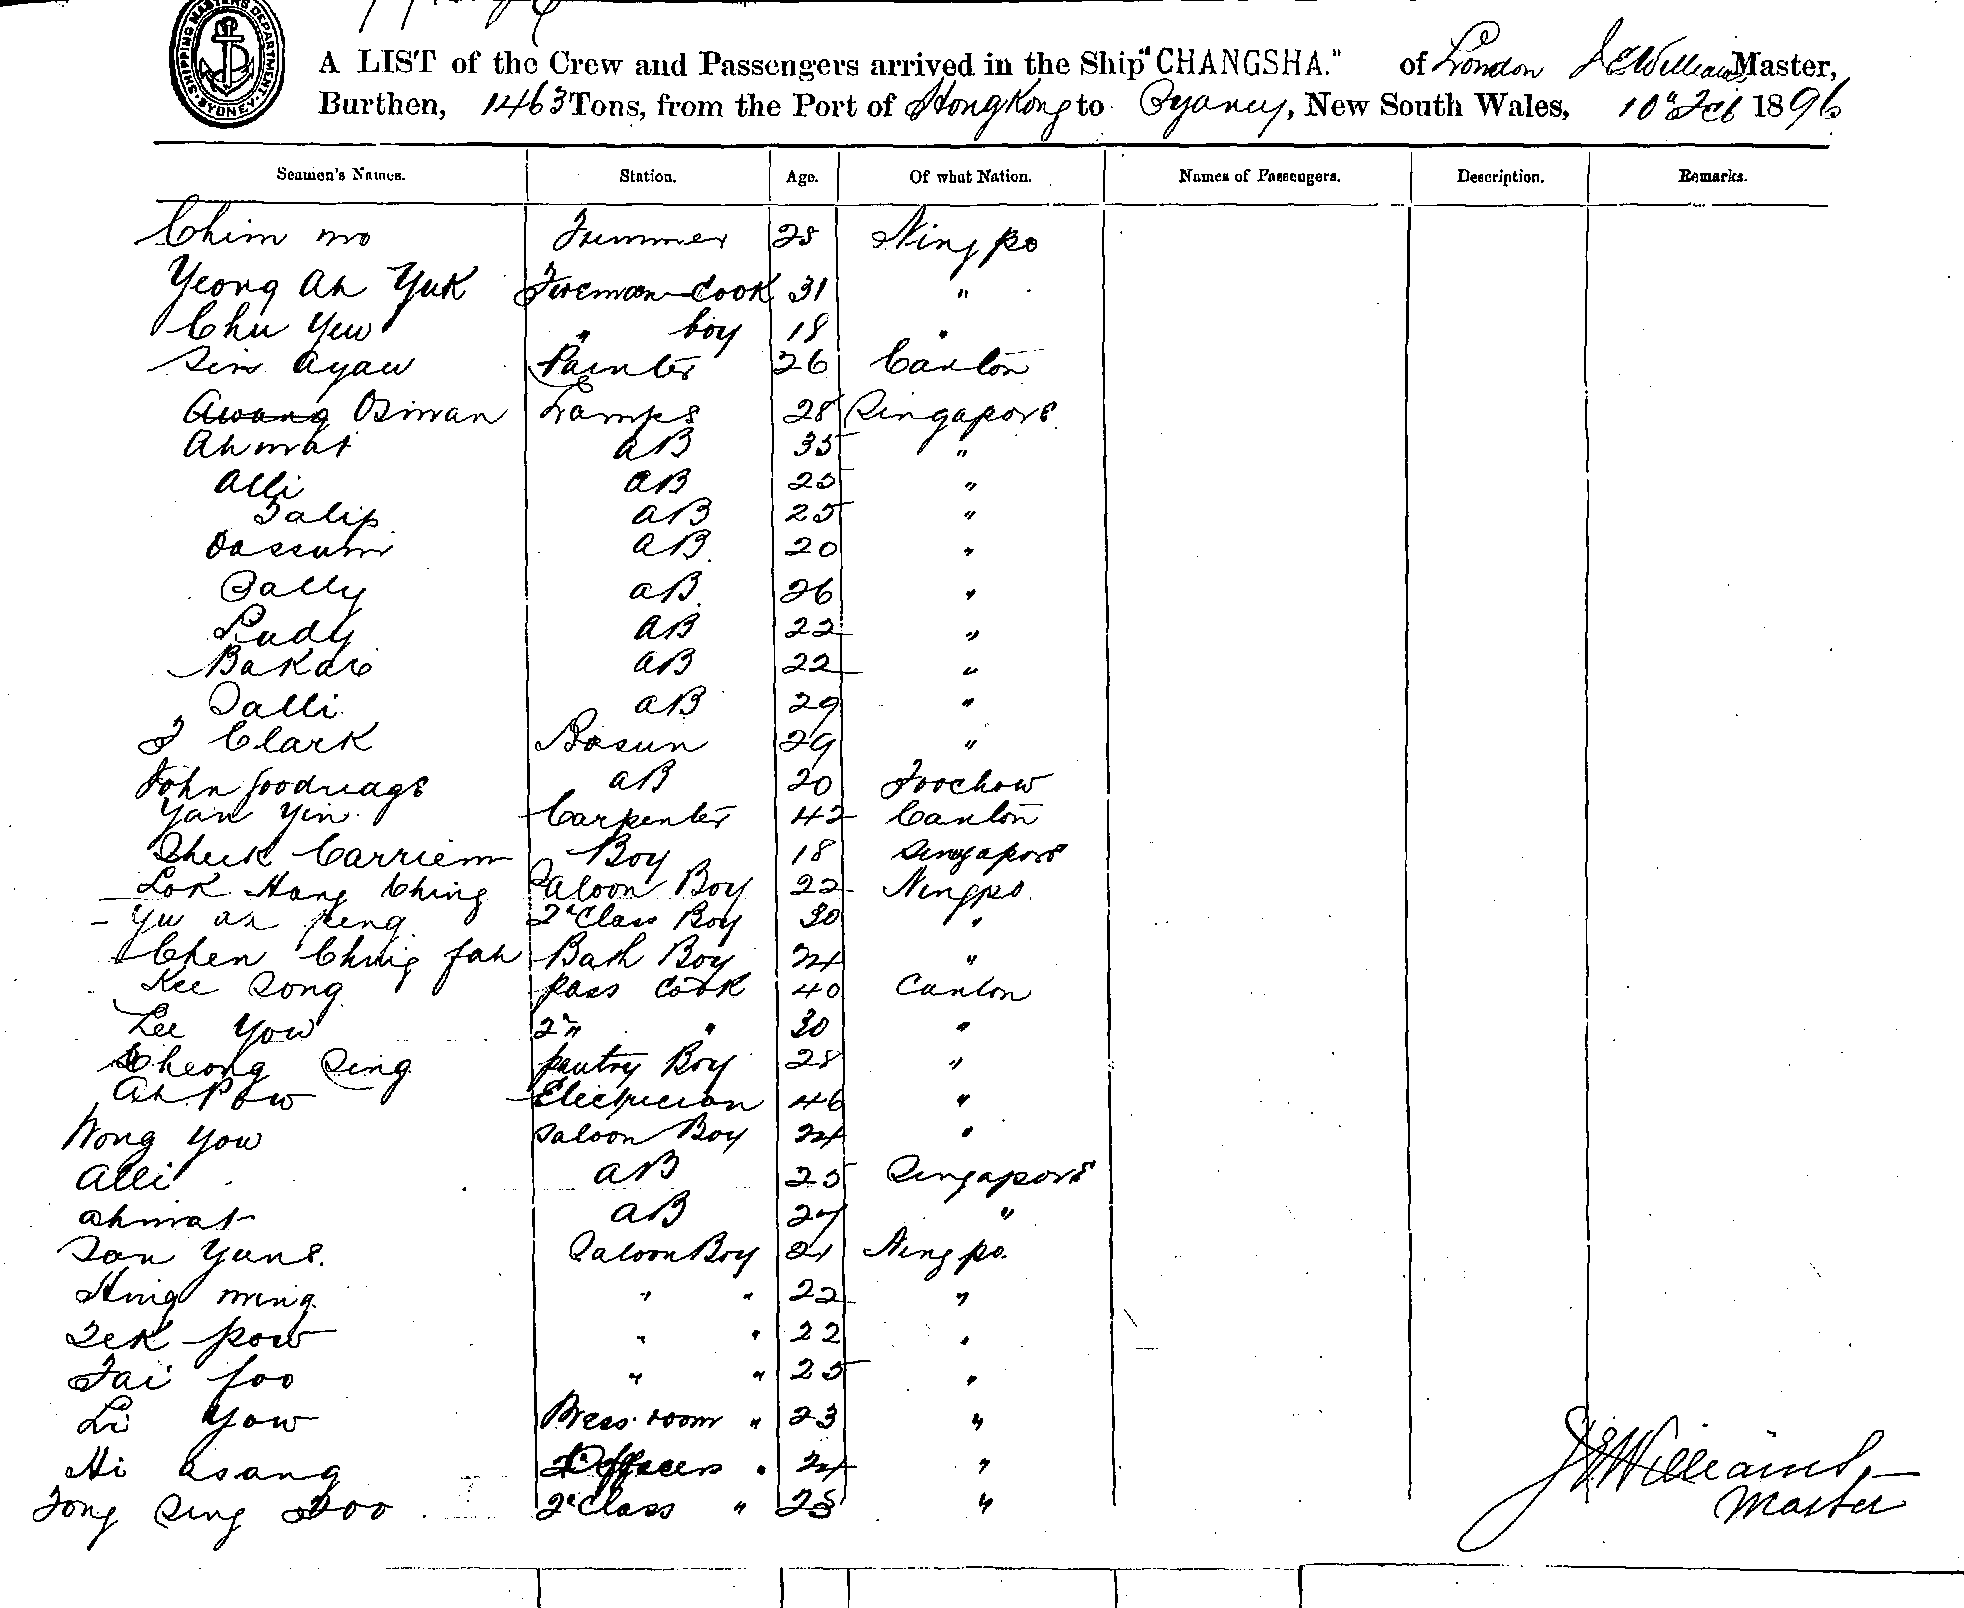 SHIPPING MASTERS DEPARTMENT. SYDNEY.
A LIST of the Crew and Passengers arrived in the Ship "CHANGSHA." of London J E Williams Master,
Burthen, 1463 Tons, from the Port of HongKong to Sydney, New South Wales, 10th Feb 1896
Seamen's Names. Station. Age. Of what Nation. Names of Passengers. Description. Remarks.
Chim mo Trimmer 28 Ningpo
Yeong Ah Yuk Fireman Cook 31 "
Chu Yew " boy 18 "
Sin Ayaw Painter 26 Canton
Awang Osman Lamps 28 Singapore
Ahmat AB 35 "
Alli AB 25 "
Talip AB 25 "
Dassum AB 20 "
Sally AB 26 "
AB 22 "
Bakar AB 22 "
Salli AB 29 "
J Clark Bosun 29 "
John AB 20 Foochow
Yan Yin Carpenter 42 Canton
Sheik Carriem Boy 18 Singapore
Lok Hang Ching Saloon Boy 22 Ningpo
Yu ah peng 2d Class Boy 30 "
Chen Ching fah Bath Boy 24 "
Kee Song pass cook 40 Canton
Lee You 2nd " 30 "
Cheong Sing pantry Boy 28 "
Ah Pow Electrician 46 "
Wong You Saloon Boy 24 "
Alli AB 25 Singapore
Ahmat AB 27 "
San Yung Saloon Boy 21 Ningpo
Hing ming " " 22 "
Zek pow " " 22 "
Tai foo " " 25 "
Li Yow Mess room " 23 "
Hi asang Officers " 24 "
Tong Sing Foo 2d Class " 28 "
J E Williams
Master